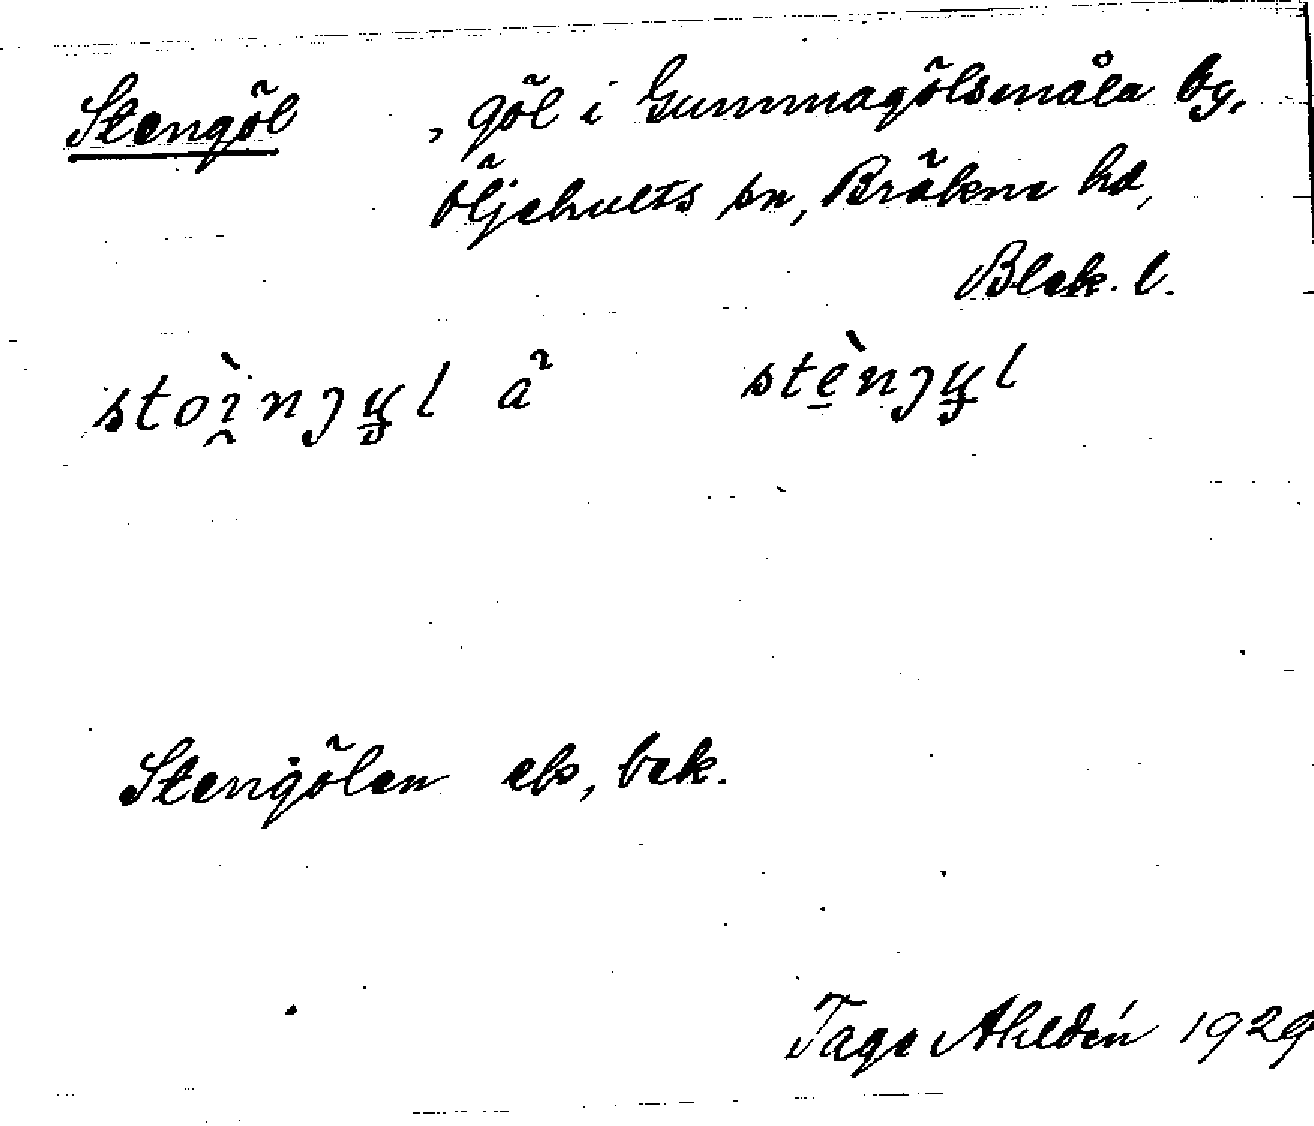 Stengöl , göl i Gummagölsmåla by,
Öljehults sn, Bräkne hd,
Blek. l.
stoìnɟʉl ä stènɟʉl
Stengölen ek, bek.
Tage Ahldén 1929